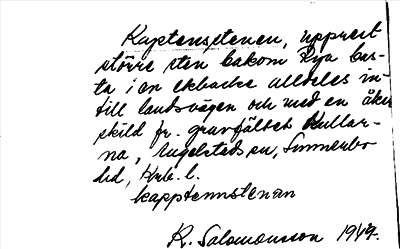 Kaptensstenen, upprest
större sten bakom Nya bas-
ta i en ekbacke alldeles in-
till landsvägen och med en åker
skild fr. gravfältet Kullar-
na, Angelstads sn, Sunnerbo
hd, Krb. l.
kapptennstenan
R. Salomonsson 1949.